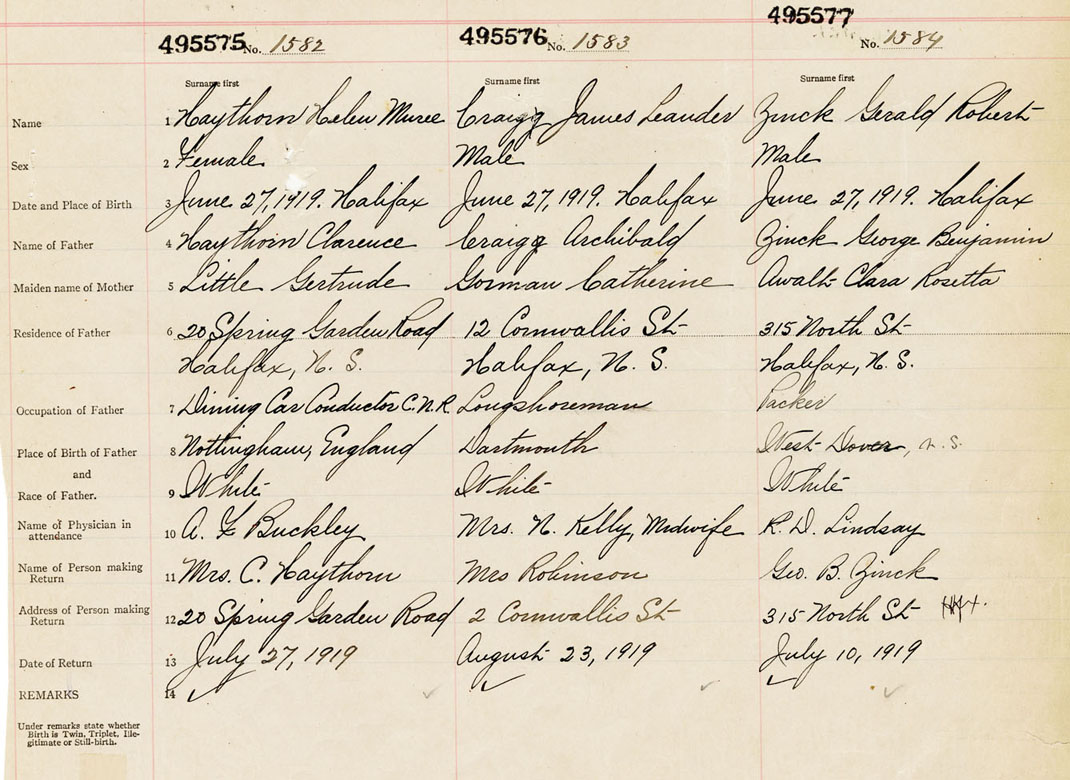 495575 No. 1582 495576 No. 1583 495577 No. 1584
Surname first Surname first Surname first
Name 1 Haythorn Helen Muree Craigg James Leander Zinck Gerald Robert
Sex 2 Female Male Male
Date and Place of Birth 3 June 27, 1919. Halifax June 27, 1919. Halifax June 27, 1919. Halifax
Name of Father 4 Haythorn Clarence Craigg Archibald Zinck George Benjamin
Maiden name of Mother 5 Little Gertrude Gorman Catherine Awalt Clara Rosetta
Residence of Father 6 20 Spring Garden Road 12 Cornwallis St 315 North St
Halifax, N. S. Halifax, N. S. Halifax, N. S.
Occupation of Father 7 Dining Car Conductor C.N.R Longshoreman Packer
Place of Birth of Father 8 Nottingham, England Dartmouth West Dover, N.S.
and
Race of Father. 9 White White White
Name of Physician in
attendance 10 A. F Buckley Mrs. N. Kelly, Midwife R. D. Lindsay
Name of Person making
Return 11 Mrs. C. Haythorn Mrs Robinson Geo. B. Zinck
Address of Person making
Return 12 20 Spring Garden Road 2 Cornwallis St 315 North St Hfx.
Date of Return 13 July 27, 1919 August 23, 1919 July 10, 1919
REMARKS 14
Under remarks state whether
Birth is Twin, Triplet, Ille-
gitimate or Still-birth.